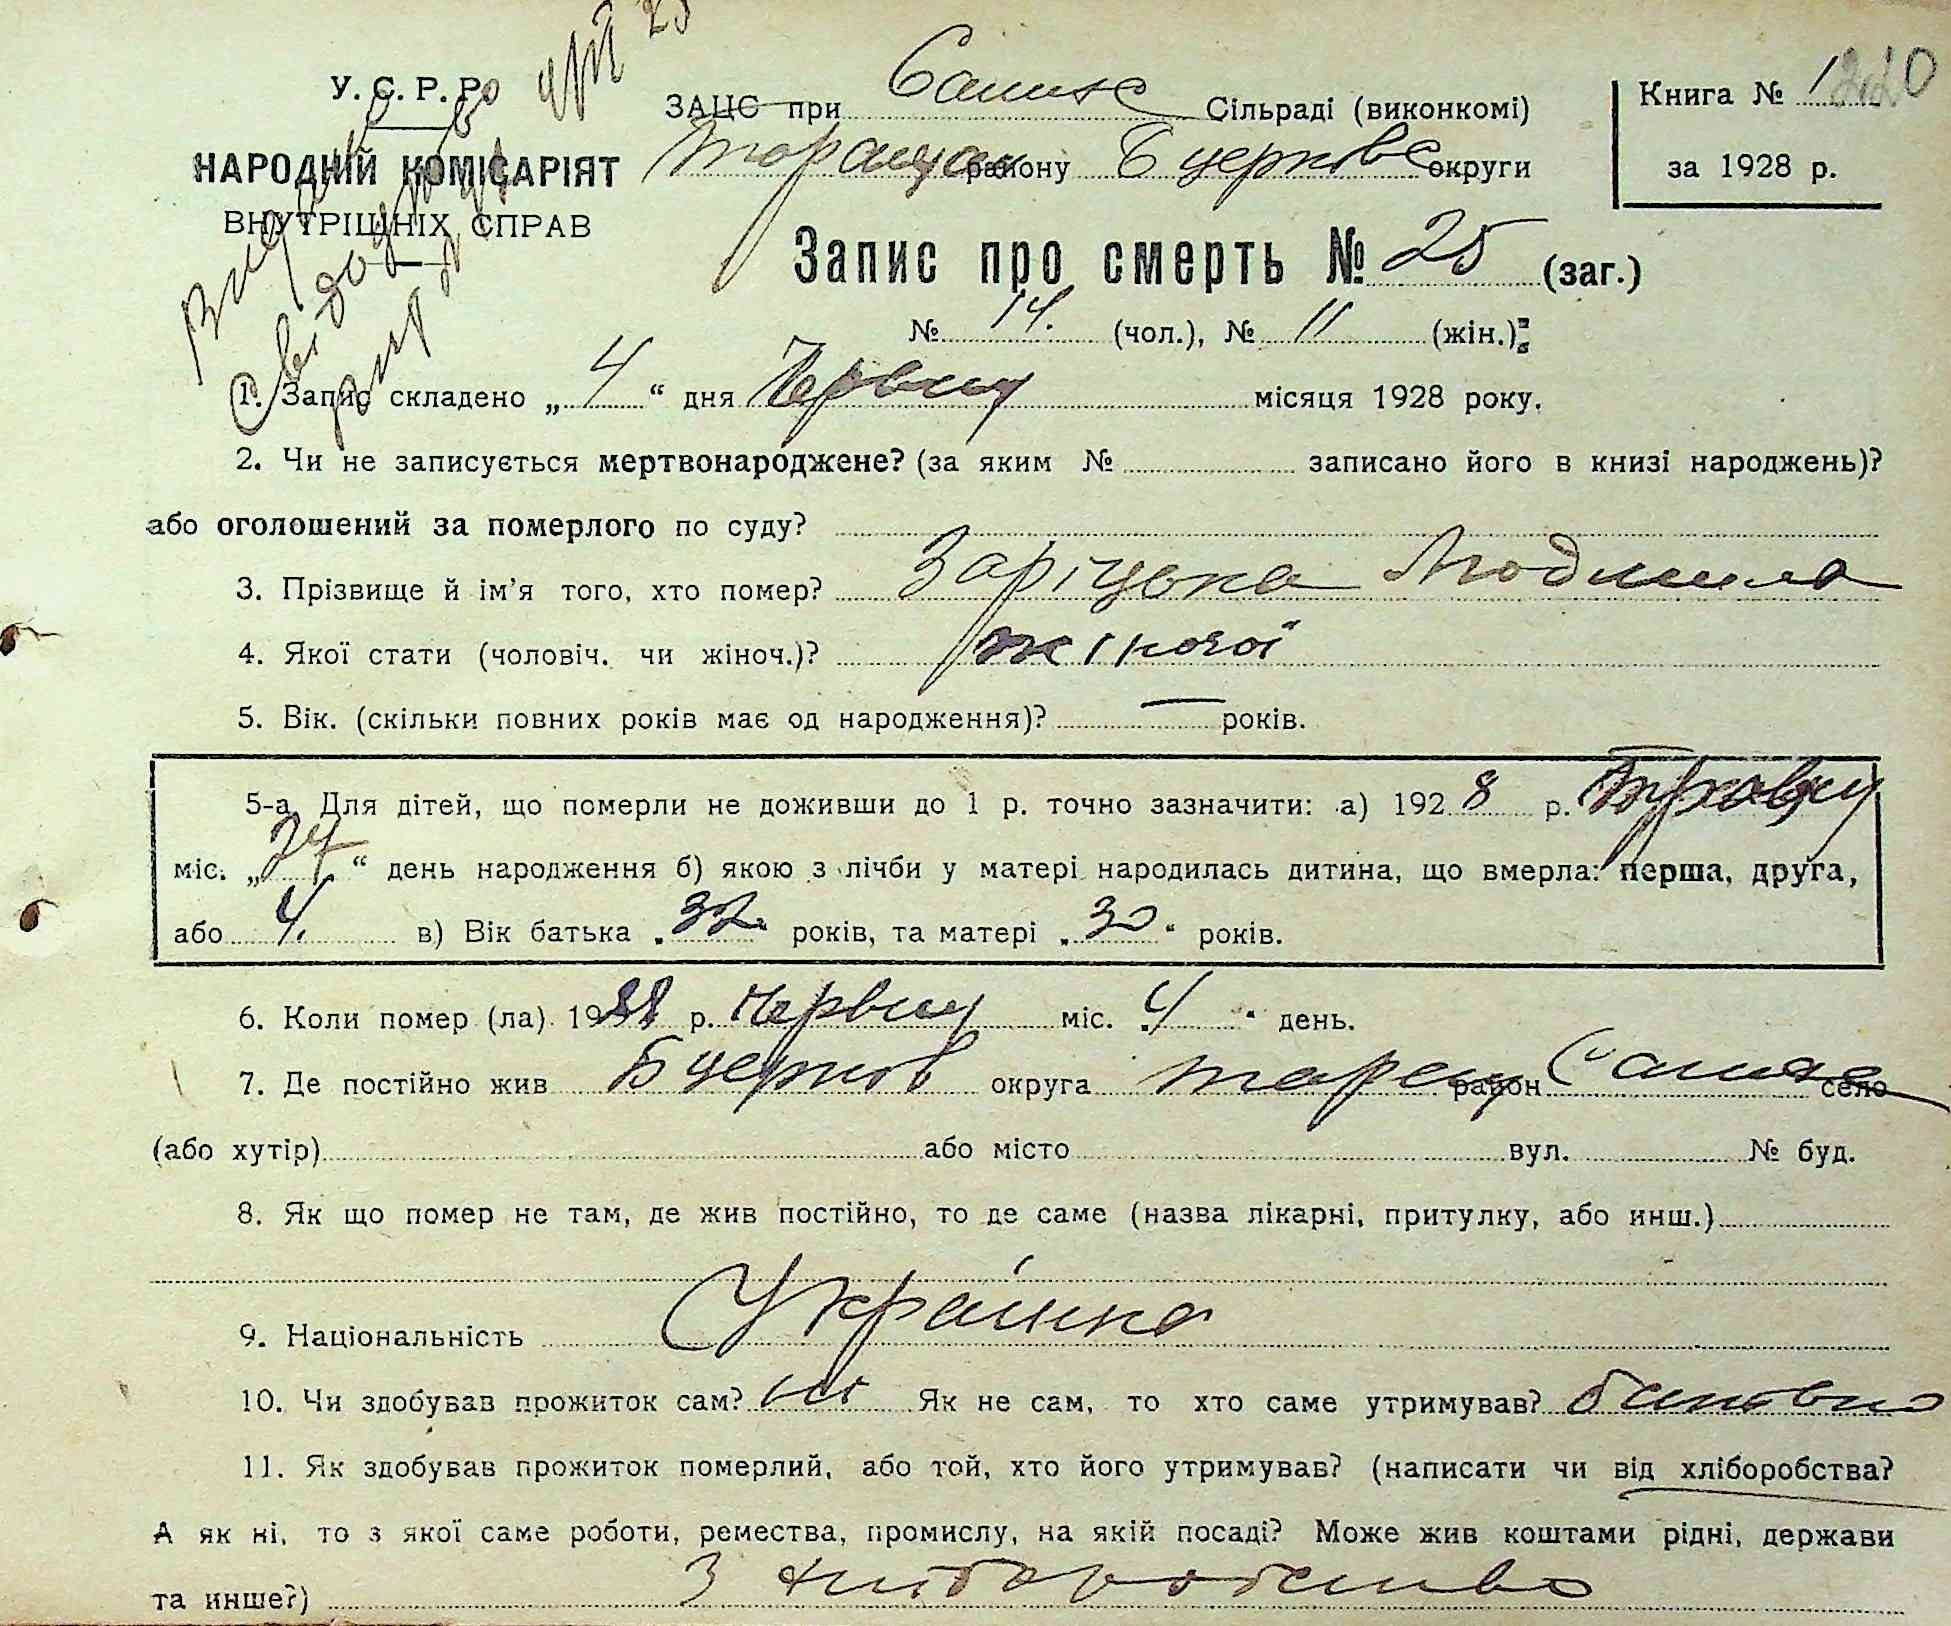 У. С. Р. Р.
НАРОДНІЙ КОМІСАРІЯТ
ВНУТРІШНІХ СПРАВ
ЗАЦС при Сільраді (виконкомі)
району Б церковс округи
Книга № 1 220
за 1928 р.
Запис про смерть № 25 (заг.)
№ 14. (чол.), № 11 (жін.)
1. Запис складено „ 4 “ дня Червня місяця 1928 року.
2. Чи не записується мертвонароджене? (за яким № записано його в книзі народжень)?
або оголошений за померлого по суду?
3. Прізвище й ім’я того, хто помер? Заріцька Людмила
4. Якої стати (чоловіч. чи жіноч.)? жіночої
5. Вік. (скільки повних років має од народження)? — років.
5-а. Для дітей, що померли не доживши до 1 р. точно зазначити: а) 1928 р.
міс. „ 27 “ день народження б) якою з лічби у матері народилась дитина, що вмерла: перша, друга,
або 4. в) Вік батька „ 32 “ років, та матері „ 30 “ років.
6. Коли помер (ла) 1928 р. Червня міс. „ 4 “ день.
7. Де постійно жив Б церков округа таращ район село
(або хутір) або місто вул. № буд.
8. Як що помер не там, де жив постійно, то де саме (назва лікарні, притулку, або инш.)
9. Національність Українка
10. Чи здобував прожиток сам? ні Як не сам, то хто саме утримував? батько
11. Як здобував прожиток померлий, або той, хто його утримував? (написати чи від хліборобства?
А як ні, то з якої саме роботи, ремества, промислу, на якій посаді? Може жив коштами рідні, держави
та инше?) З хліборобства